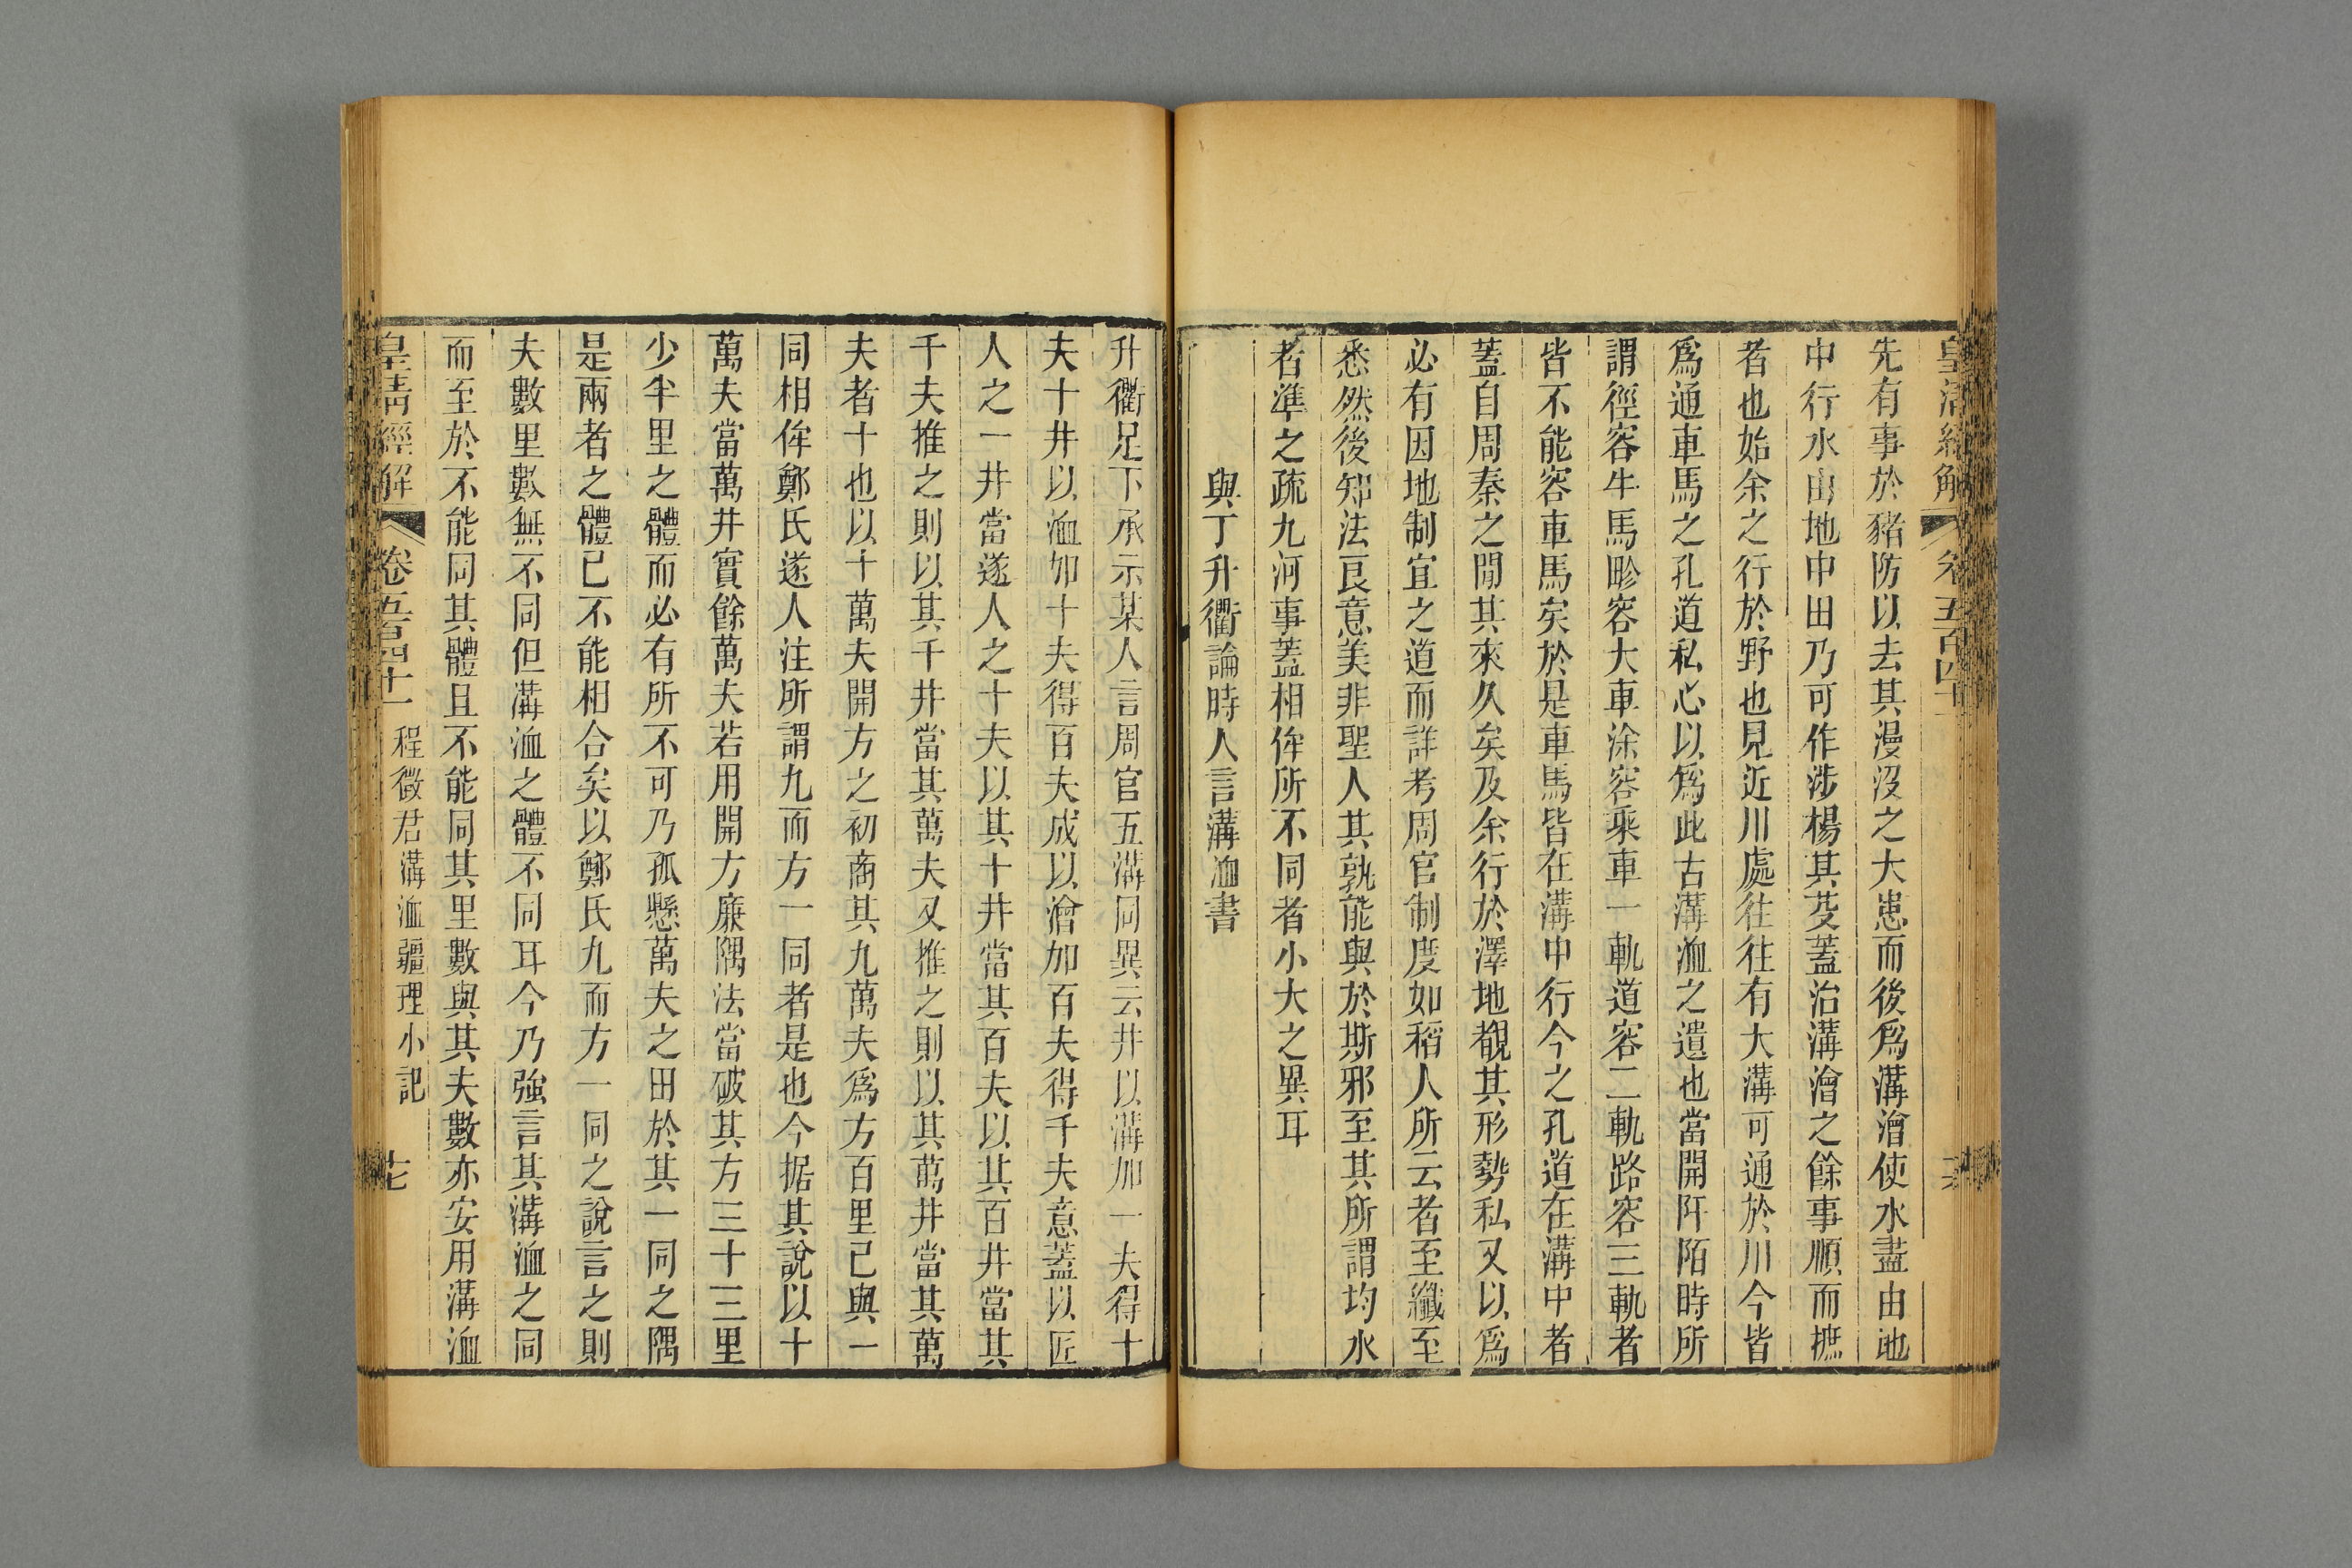 皇清經解 卷五百四十一 十六
先有事於豬防以去其漫沒之大患而後爲溝澮使水盡由地
中行水由地中田乃可作涉楊其芟蓋治溝澮之餘事順而摭
者也始余之行於野也見近川處往往有大溝可通於川今皆
爲通車馬之孔道私心以爲此古溝洫之遺也當開阡陌時所
謂徑容牛馬畛容大車涂容乘車一軌道容二軌路容三軌者
皆不能容車馬矣於是車馬皆在溝中行今之孔道在溝中者
蓋自周秦之閒其來久矣及余行於澤地覩其形勢私又以爲
必有因地制宜之道而詳考周官制度如稻人所云者至纖至
悉然後知法良意美非聖人其孰能與於斯邪至其所謂均水
者準之疏九河事蓋相侔所不同者小大之異耳
與丁升衢論時人言溝洫書
升衢足下承示某人言周官五溝同異云井以溝加一夫得十
夫十井以洫如十夫得百夫成以澮加百夫得千夫意蓋以匠
人之一井當遂人之十夫以其十井當其百夫以其百井當其
千夫推之則以其千井當其萬夫又推之則以其萬井當其萬
夫者十也以十萬夫開方之初商其九萬夫爲方百里已與一
同相侔鄭氏遂人注所謂九而方一同者是也今据其說以十
萬夫當萬井實餘萬夫若用開方廉隅法當破其方三十三里
少半里之體而必有所不可乃孤懸萬夫之田於其一同之隅
是兩者之體已不能相合矣以鄭氏九而方一同之說言之則
夫數里數無不同但溝洫之體不同耳今乃強言其溝洫之同
而至於不能同其體且不能同其里數與其夫數亦安用溝洫
皇清經解 卷五百四十一 程徵君溝洫疆理小記 十七